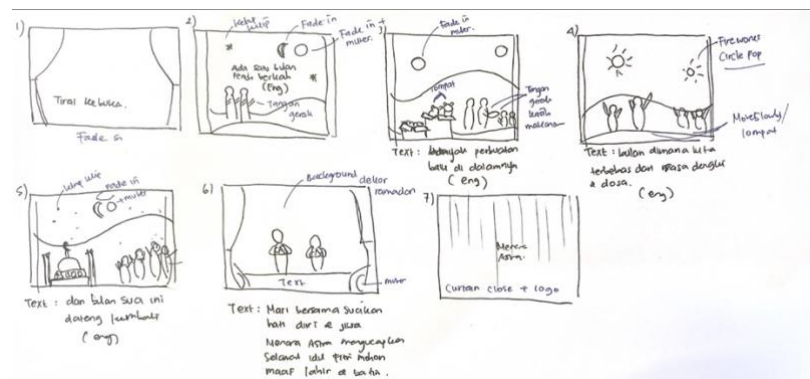 1)
Tirai kebuka.
Fade in
2)
kelap kelip
Fade in
Fade in +
muter.
Ada satu bulan
penuh berkah
(Eng)
Tangan
gerak
3)
Fade in
muter.
Lompat
Tangan
gerak
makanan
Text : banyak perbuatan
baik di dalamnya
(eng)
4)
Fireworks
Circle Pop
Move body /
lompat
Text : bulan dimana kita
terbebas dari rasa dengki
& dosa.
(eng)
5)
Fade in
+ muter
Text : dan bulan suci ini
datang kembali
(eng)
6)
Background dekor
ramadan
Text
muter
Text : Mari bersama sucikan
hati diri & jiwa
Menara Astra mengucapkan
Selamat idul fitri mohon
maaf lahir & batin.
7)
Menara
Astra.
Curtain close + logo